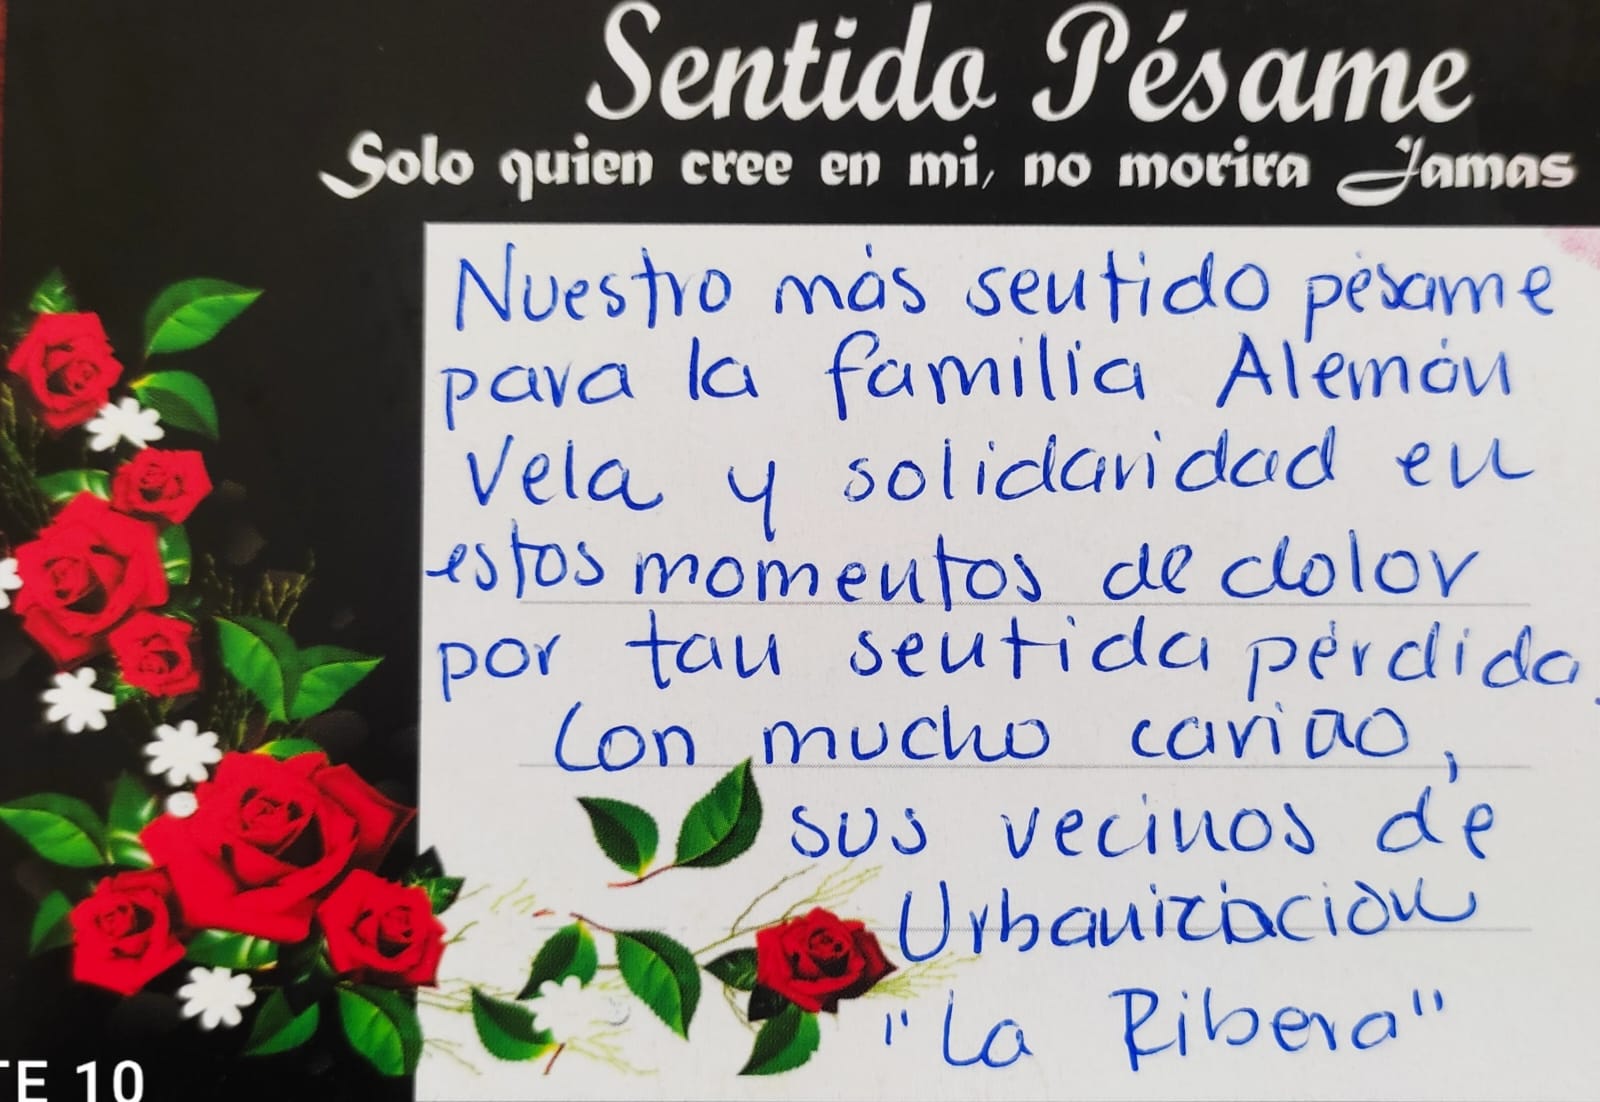 Sentido Pésame
Solo quien cree en mi, no morira Jamas
Nuestro más sentido pésame
para la familia Alemán
Vela y solidaridad en
estos momentos de dolor
por tan sentida pérdida.
Con mucho cariño,
sus vecinos de
Urbanización
"La Ribera"
TE 10